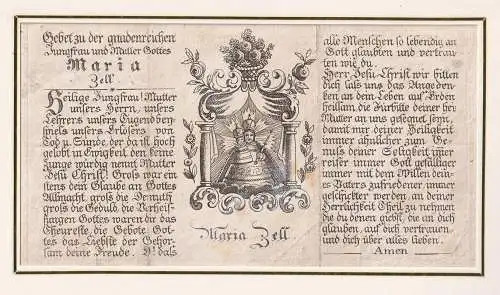 Gebet zu der gnadenreichen
Jungfrau und Mutter Gottes
Maria
Zell.
Heilige Jungfrau! Mutter
unsers Herrn, unsers
Lehrers unsers Tugendbey-
spiels unsers Erlösers von
Tod u. Sünde, der da ist hoch
gelobt in Ewigkeit, den keine
Zunge würdig nennt, Mutter
Jesu Christ! Gros war ein-
stens dein Glaube an Gottes
Allmacht, gross die Demuth
gross die Geduld, die
Gottes waren dir das
Theureste, die Gebote Got-
tes das Liebste der Gehor-
sam deine Freude. dass
Maria Zell.
alle Menschen so lebendig an
Gott glaubten und vertrau-
ten wie du.
Herr Jesu Christ wir bitten
dich lass uns das Angeden-
ken an dein Leben auf Erden
heilsam, die Fürbitte deiner hei-
Mutter an uns gesegnet seyn,
damit wir deiner Heiligkeit
immer ähnlicher zum Ge-
nuss deiner Seligkeit immer
reifer immer Gott gefälliger
immer mit dem Willen dein-
es Vaters zufriedener immer
geschickter werden, an deiner
Herrlichkeit Theil zu nehmen
die du denen giebst, die an dich
glauben, auf dich vertrauen
und dich über alles lieben.
Amen